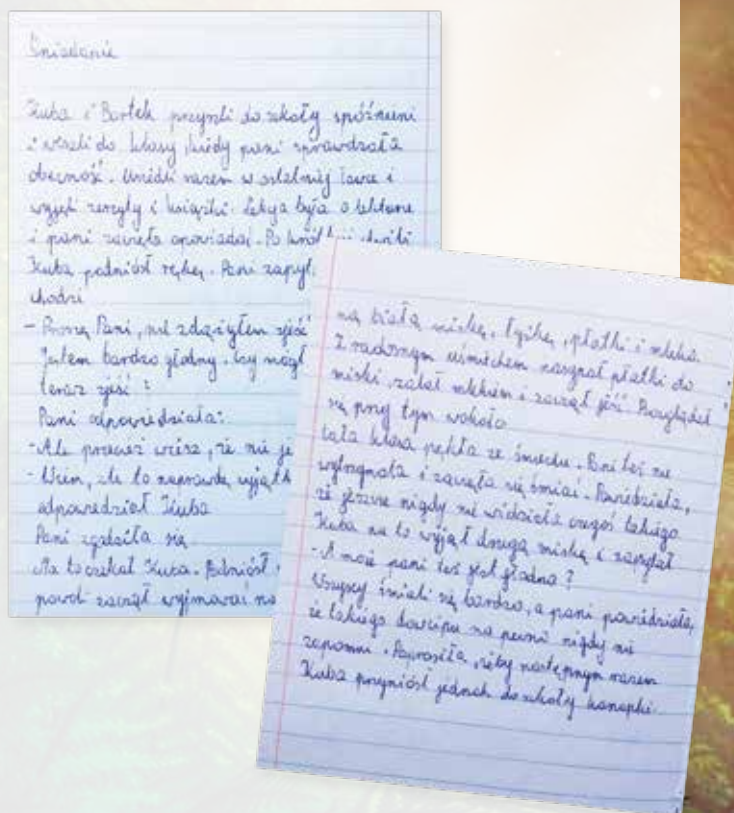 Śniadanie
Kuba i Bartek przyszli do szkoły spóźnieni
i weszli do klasy, kiedy pani sprawdzała
obecność. Usiedli razem w ostatniej ławce i
wyjęli zeszyty i książki. Lekcja była o
i pani zaczęła opowiadać. Po krótkiej chwili
Kuba podniósł rękę. Pani zapyt
chodzi
- Proszę Pani, nie zdążyłem zjeść
Jestem bardzo głodny. Czy mógł
teraz zjeść?
Pani odpowiedziała:
- Ale przecież wiesz, że nie je
- Wiem, ale to naprawdę wyjąt
odpowiedział Kuba
Pani zgodziła się
Na to czekał Kuba. Podniósł
powoli zaczął wyjmować na
ną białą miskę, łyżkę, płatki i mleko.
Z radosnym uśmiechem nasypał płatki do
miski, zalał mlekiem i zaczął jeść. Rozglądał
się przy tym wokoło
Cała klasa pękła ze śmiechu. Pani też nie
wytrzymała i zaczęła się śmiać. Powiedziała,
że jeszcze nigdy nie widziała czegoś takiego
Kuba na to wyjął drugą miskę i zapytał
- A może pani też jest głodna?
Wszyscy śmiali się bardzo, a pani powiedziała,
że takiego dowcipu na pewno nigdy nie
zapomni. Poprosiła, żeby następnym razem
Kuba przyniósł jednak do szkoły kanapki.